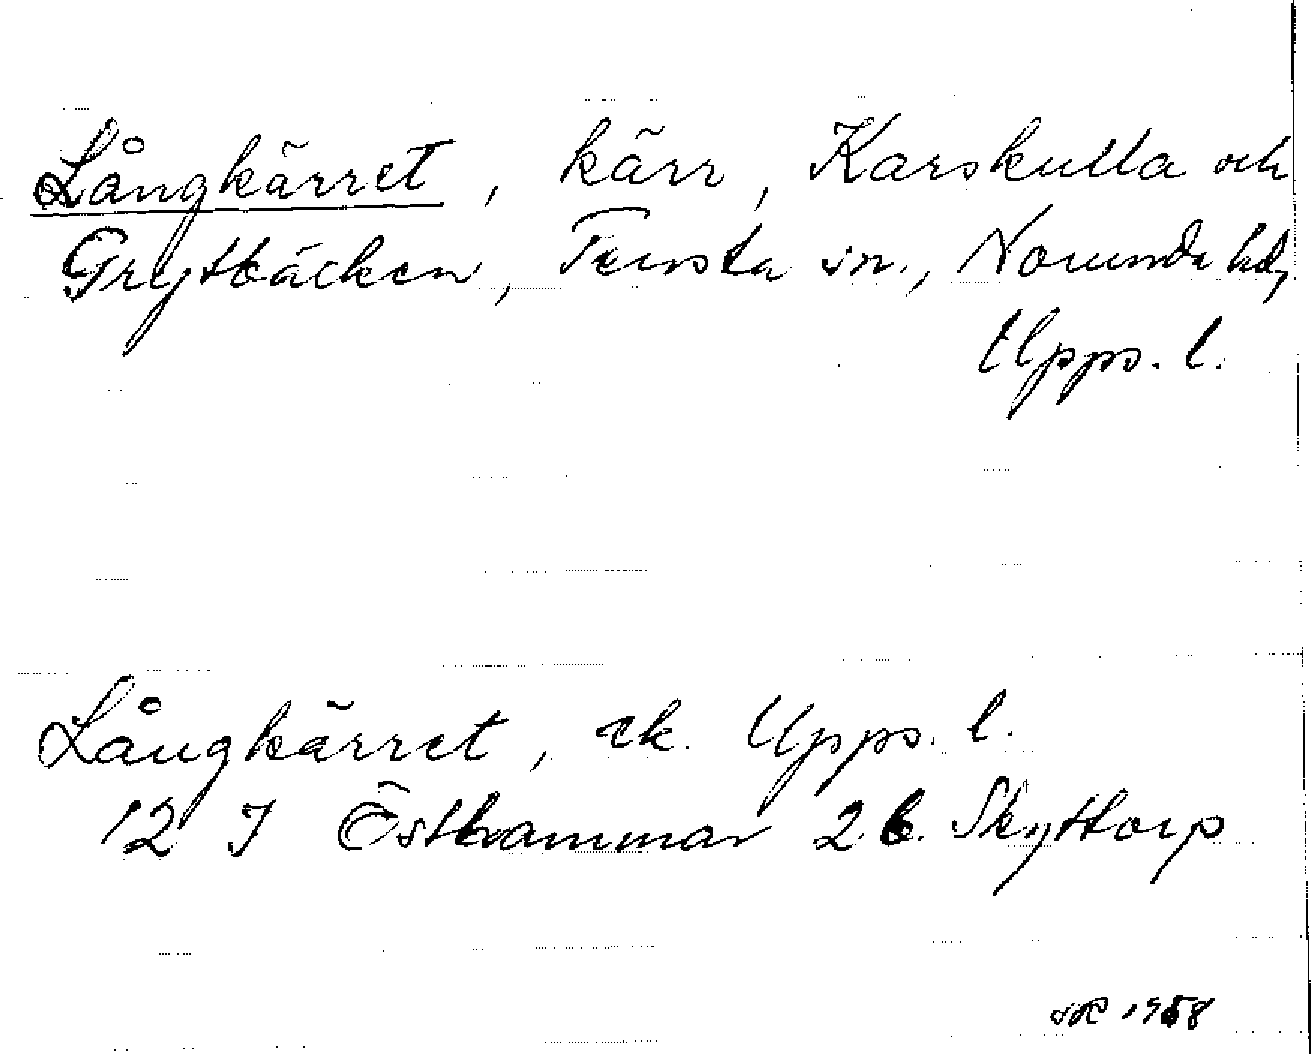 Långkärret, kärr, Karskulla och
Grytbäcken, Tensta sn., Norunda hd,
Upps. l.
Långkärret, ek. Upps. l.
12 I Östhammar 2 b. Skyttorp
1958